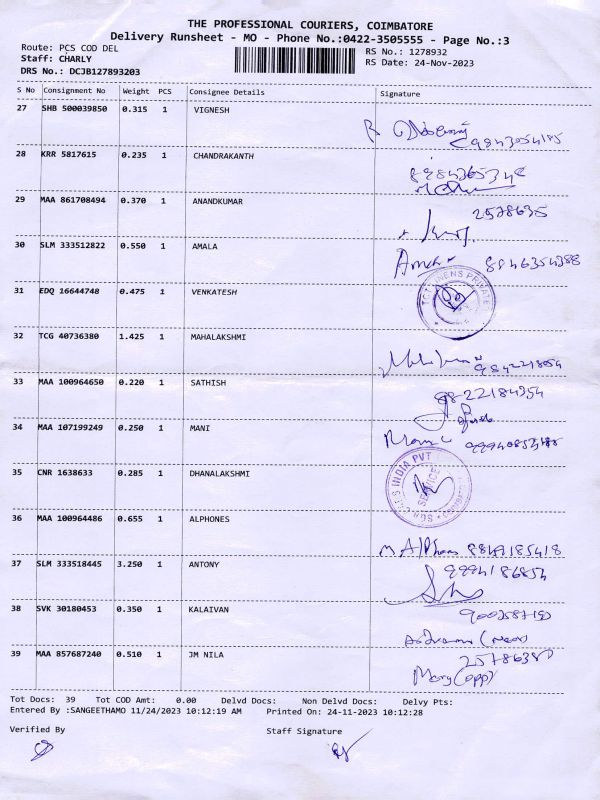 THE PROFESSIONAL COURIERS, COIMBATORE
Delivery Runsheet - MO - Phone No.:0422-3505555 - Page No.:3
Route: PCS COD DEL RS No.: 1278932
Staff: CHARLY RS Date: 24-Nov-2023
DRS No.: DCJB127893203
S No Consignment No Weight PCS Consignee Details Signature
27 SHB 500039850 0.315 1 VIGNESH
28 KRR 5817615 0.235 1 CHANDRAKANTH
29 MAA 861708494 0.370 1 ANANDKUMAR
2578635
30 SLM 333512822 0.550 1 AMALA
8846354388
31 EDQ 16644748 0.475 1 VENKATESH
32 TCG 40736380 1.425 1 MAHALAKSHMI
33 MAA 100964650 0.220 1 SATHISH
88-22184354
34 MAA 107199249 0.250 1 MANI
35 CNR 1638633 0.285 1 DHANALAKSHMI
INDIA PVT
SERVICE
36 MAA 100964486 0.655 1 ALPHONES
37 SLM 333518445 3.250 1 ANTONY
38 SVK 30180453 0.350 1 KALAIVAN
39 MAA 857687240 0.510 1 JM NILA
Mary (opp)
Tot Docs: 39 Tot COD Amt: 0.00 Delvd Docs: Non Delvd Docs: Delvy Pts:
Entered By :SANGEETHAMO 11/24/2023 10:12:19 AM Printed On: 24-11-2023 10:12:28
Verified By Staff Signature